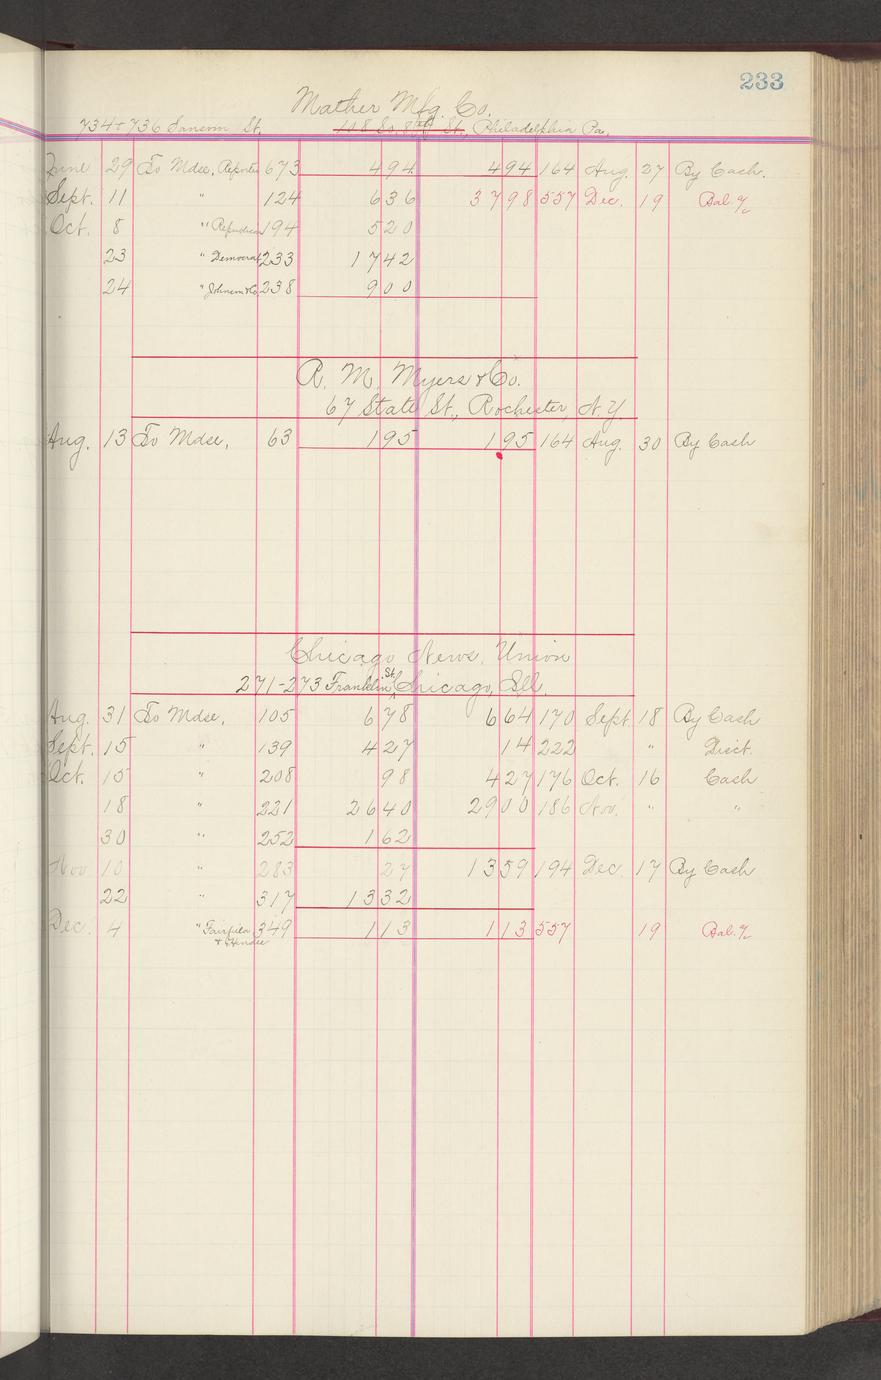 233
Mather Mfg. Co.
734 & 736 Sansom St. 108 So. 8th St., Philadelphia Pa.
June 29 To Mdse, Reporter 673 4 94 4 94 164 Aug. 27 By Cash.
Sept. 11 " 124 6 36 37 98 557 Dec. 19 Bal. %
Oct. 8 " Republican 194 5 20
23 " Democrat 233 17 42
24 " Johnson & Co. 238 9 00
R. M. Myers & Co.
67 State St., Rochester, N.Y.
Aug. 13 To Mdse, 63 1 95 1 95 164 Aug. 30 By Cash
Chicago News. Union
271-273 Franklin St. Chicago, Ill.
Aug. 31 To Mdse, 105 6 78 6 64 170 Sept. 18 By Cash
Sept. 15 " 139 4 27 14 222 " Disct.
Oct. 15 " 208 98 4 27 176 Oct. 16 Cash
18 " 221 26 40 29 00 186 Nov. " "
30 " 252 1 62
Nov. 10 " 283 27 13 59 194 Dec. 17 By Cash
22 " 317 13 32
Dec. 4 " 349 1 13 1 13 557 19 Bal. %